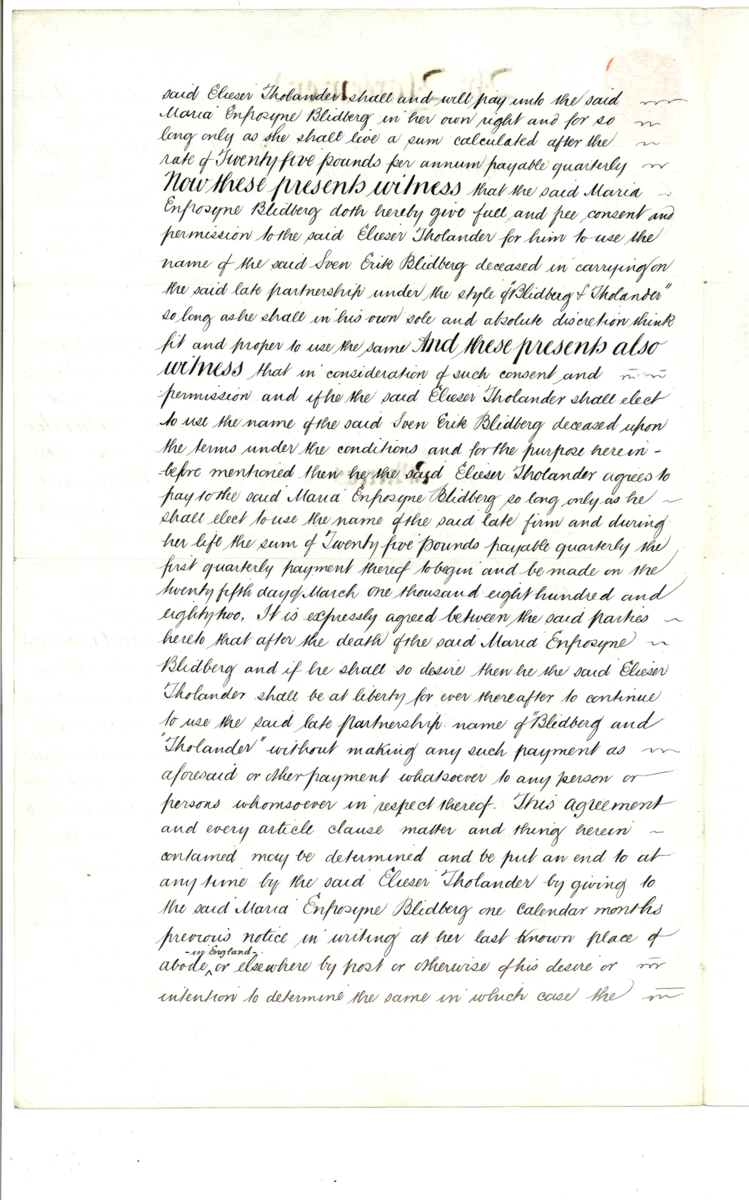 said Elieser Tholander shall and will pay unto the said
Maria Enfrosyne Blidberg in her own right and for so
long only as she shall live a sum calculated after the
rate of Twenty five pounds per annum payable quarterly
Now these presents witness that the said Maria
Enfrosyne Blidberg doth hereby give full and free consent and
permission to the said Elieser Tholander for him to use the
name of the said Sven Erik Blidberg deceased in carrying on
the said late partnership under the style of "Blidberg & Tholander"
so long as he shall in his own sole and absolute discretion think
fit and proper to use the same And these presents also
witness that in consideration of such consent and
permission and if he the said Elieser Tholander shall elect
to use the name of the said Sven Erik Blidberg deceased upon
the terms under the conditions and for the purpose herein-
before mentioned then he the said Elieser Tholander agrees to
pay to the said Maria Enfrosyne Blidberg so long only as he
shall elect to use the name of the said late firm and during
her life the sum of Twenty five pounds payable quarterly the
first quarterly payment thereof to begin and be made on the
twenty fifth day of March one thousand eight hundred and
eighty two, It is expressly agreed between the said parties
hereto that after the death of the said Maria Enfrosyne
Blidberg and if he shall so desire then he the said Elieser
Tholander shall be at liberty for ever thereafter to continue
to use the said late partnership name of "Blidberg and
"Tholander" without making any such payment as
aforesaid or other payment whatsoever to any person or
persons whomsoever in respect thereof. This agreement
and every article clause matter and thing herein
contained may be determined and be put an end to at
any time by the said Elieser Tholander by giving to
the said Maria Enfrosyne Blidberg one calendar months
previous notice in writing at her last known place of
-in England-
abode, or elsewhere by post or otherwise of his desire or
intention to determine the same in which case the